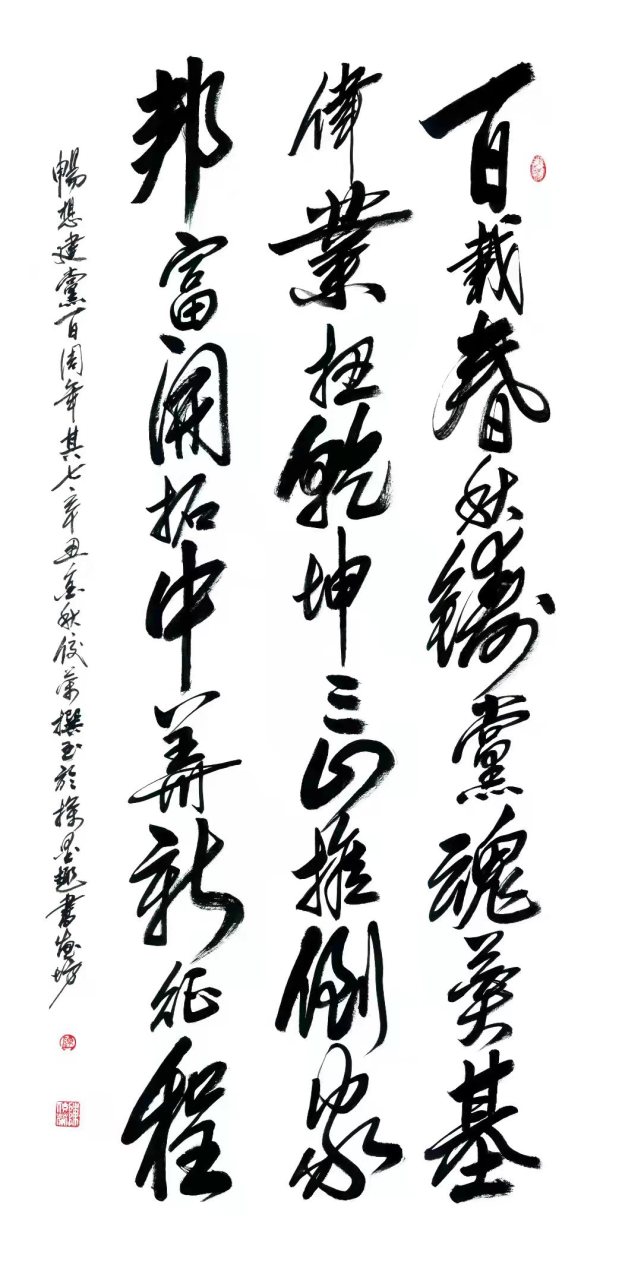 百載春秋鑄黨魂奠基
偉業扭乾坤三山推倒家
邦富開拓中華新征程
暢想建黨百周年其七辛丑金秋撰於墨趣書畫坊